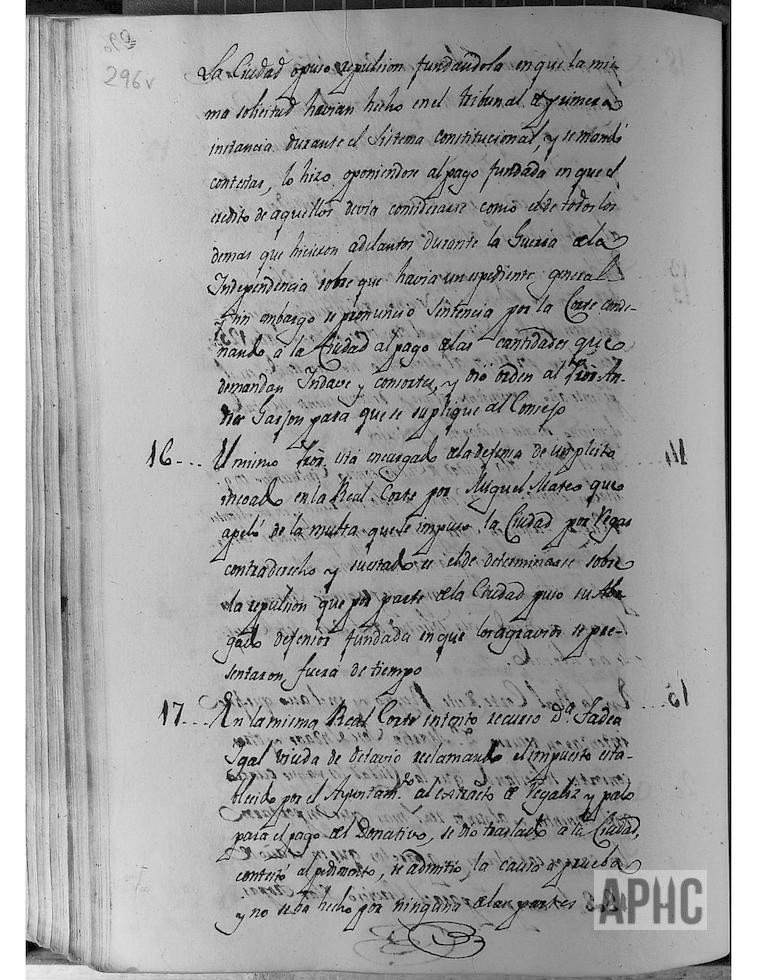 296v
La Ciudad opuso repulsion fundandola en que la mis-
ma solicitud havian hecho en el tribunal de primera
instancia durante el Sistema constitucional, y se mandó
contestar, lo hizo oponiendose al pago fundada en que el
credito de aquellos devia considerarse como el de todos los
demas que hicieron adelantos durante la Guerra de la
Independencia sobre que havia un espediente general
sin embargo se pronunció Sentencia por la Corte conde-
nando a la Ciudad al pago de las cantidades que
demandan Indave y consortes, y dió orden al Sor. An-
dres Garjon para que se suplique al Consejo
16... El mismo Sor. está encargado de la defensa de un pleito
incoado en la Real Corte por Miguel Mateo que
apeló de la multa que le impuso la Ciudad por
contraderecho y su estado es el de determinarse sobre
la repulsion que por parte de la Ciudad puso su Abo-
gado defensor fundada en que los agravios se pre-
sentaron fuera de tiempo
17... En la misma Real Corte intentó recurso Da. Fadea
Igal viuda de Octavio reclamando el impuesto esta-
blecido por el Ayuntamto. al extracto de Regaliz y palo
para el pago del Donativo, se dio traslado a la Ciudad,
contestó al pedimento, se admitió la causa a prueba
y no se ha hecho por ninguna de las partes
APHC